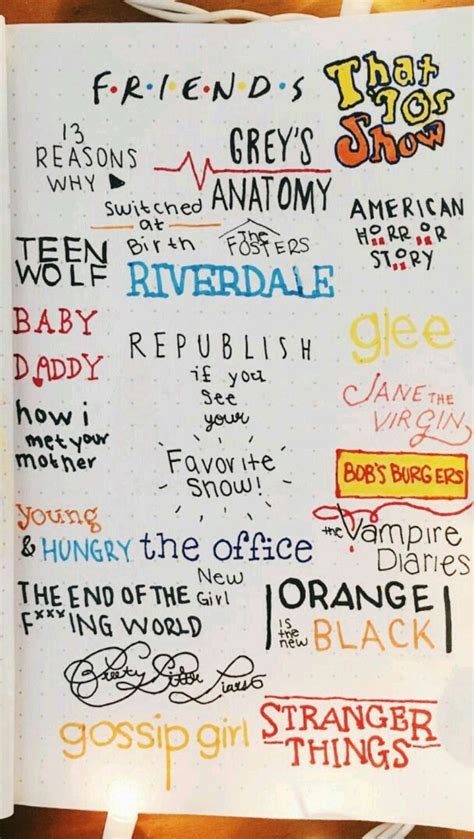 F•R•I•E•N•D•S
That
'70s
Show
13
REASONS
WHY
GREY'S
ANATOMY
Switched
at
Birth
The
FOSTERS
AMERICAN
HORROR
STORY
TEEN
WOLF
RIVERDALE
BABY
DADDY
REPUBLISH
if you
see
your
Favorite
Show!
glee
JANE THE
VIRGIN
how i
met your
mother
BOB'S BURGERS
young
& HUNGRY
the office
the Vampire
Diaries
THE END OF THE
F***ING WORLD
New
Girl
ORANGE
is
the
new
BLACK
Pretty Little Liars
gossip girl
STRANGER
THINGS